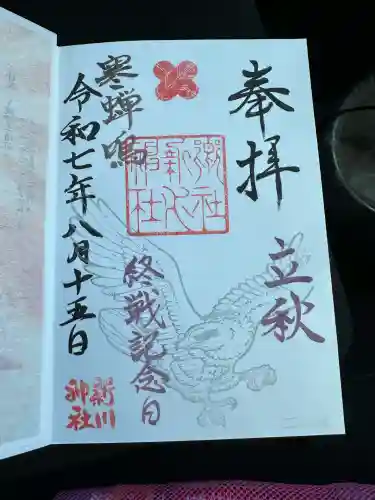 奉拝
立秋
終戦記念日
寒蝉鳴
令和七年八月十五日
新川
神社